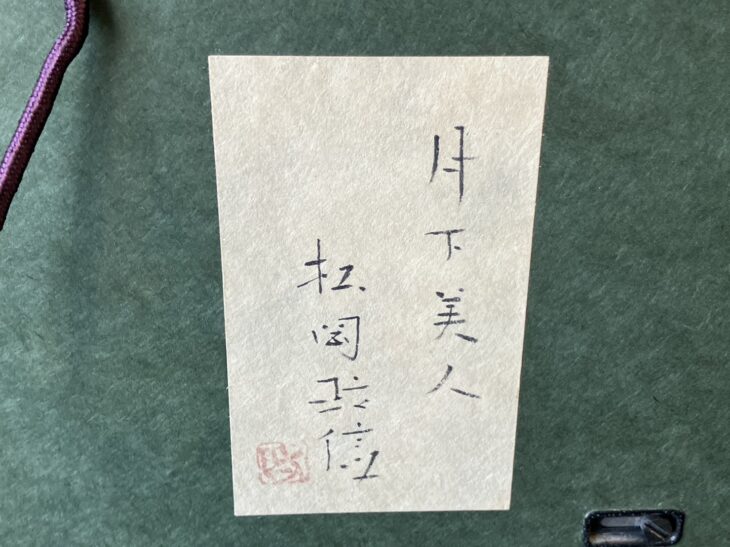 月下美人
松岡政信